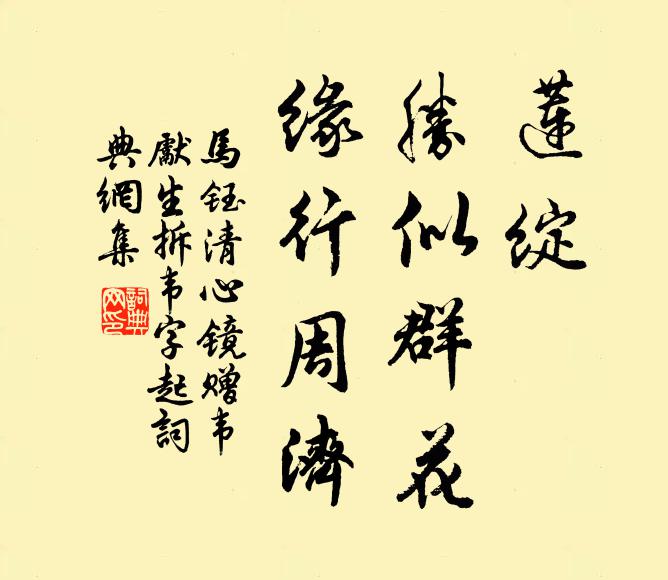 蓮綻
勝似群花
緣行周濟
馬鈺清心鏡贈韦
獻生拆韦字起詞
典網集
詞典網印